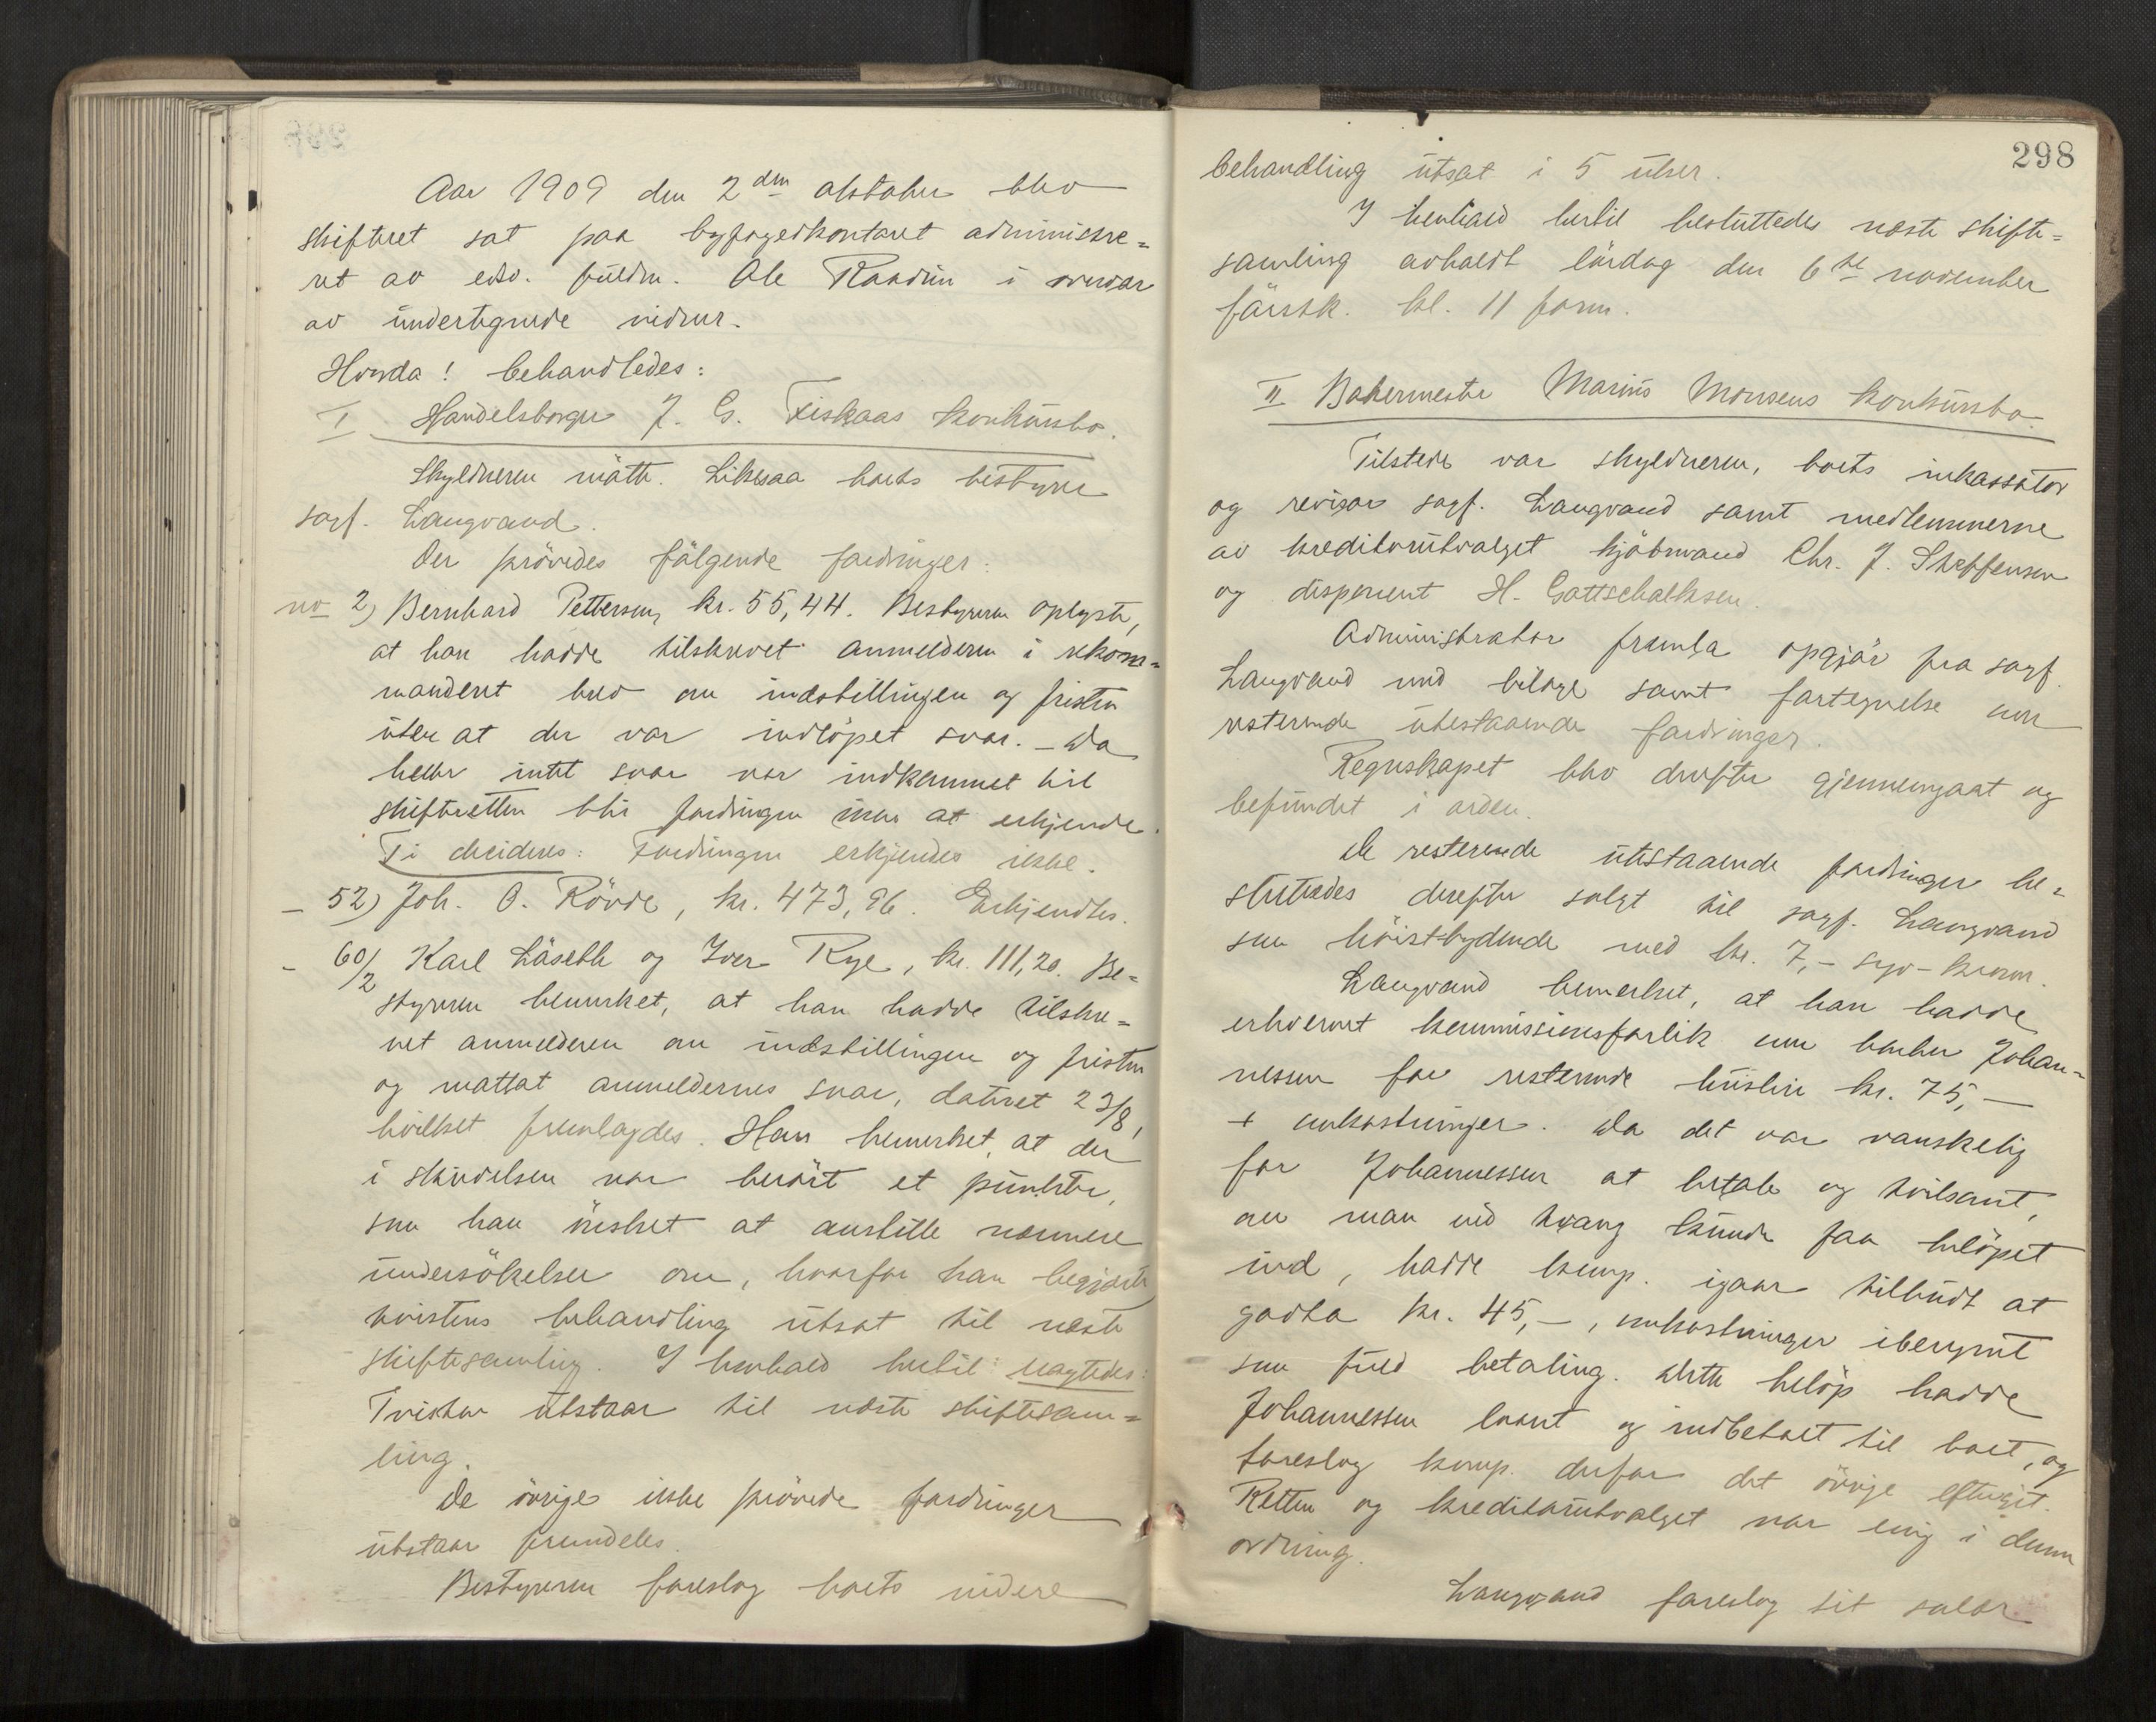 Aar 1909 den 2den oktober blev
skifteret sat paa byfogedkontoret administre=
ret av edsv. fuldm. Ole Raadim i overvær
av undertegnede vidner.
Hvorda! behandledes:
I Handelsborger J. G. Fiskaas konkursbo.
Skyldneren mötte. Likesaa boets bestyrer
sagf. Langvand.
Der prövedes fölgende fordringer:
no 2) Bernhard Pettersen, kr. 55,44. Bestyreren oplyste,
at han hadde tilskrevet anmelderen i rekom=
manderet brev om indstillingen og fristen
uten at der var indlöpet svar. – Da
heller intet svar var indkommet til
skifteretten blir fordringen ikke at erkjende.
Ti decideres: Fordringen erkjendes ikke.
– 52) Joh. O. Rövde, kr. 473,96. Erkjendtes.
– 60/2 Karl Låseth og Iver Rye, kr. 111,20. Be=
styreren bemerket, at han hadde tilskre=
vet anmelderen om indstillingen og fristen
og mottat anmeldernes svar, datert 23/8,
hvilket fremlagdes. Han bemerket, at der
i skrivelsen var berört et punkte,
som han önsket at anstille nærmere
undersökelser om, hvorfor han begjærte
tvistens behandling utsat til næste
skiftesamling. I henhold hertil vagtedes:
Tvisten utstaar til næste skiftesam=
ling.
De övrige ikke prövede fordringer
utstaar fremdeles.
Bestyreren foreslog boets videre
298
behandling utsat i 5 uker.
I henhold hertil besluttedes næste skifte=
samling avholdt lördag den 6te november
förstk. kl. 11 form.
II Bakermester Marius Monsens konkursbo.
Tilstede var skyldneren, boets inkassator
og revisor sagf. Langvand samt medlemmerne
av kreditorutvalget kjöbmand Chr. J. Steffensen
og disponent H. Gottschalksen.
Administrator fremla opgjör fra sagf.
Langvand med bilage samt fortegnelse over
resterende utestaaende fordringer.
Regnskapet blev derefter gjennemgaat og
befundet i orden.
De resterende utestaaende fordringer be=
sluttedes derefter solgt til sagf. Langvand
som höistbydende med kr. 7,– syv – kroner.
Langvand bemerket, at han hadde
erhvervet kommissionsforlik over barber Johan=
nessen for resterende husleie kr. 75,–
+ omkostninger. Da det var vanskelig
for Johannessen at betale og tvilsomt,
om man ved tvang kunde faa belöpet
ind, hadde komp. igaar tilbudt at
godta kr. 45,–, omkostninger iberegnet
som fuld betaling. Dette belöp hadde
Johannessen laant og indbetalt til boet, og
foreslog komp. derfor det övrige eftergit.
Retten og kreditorutvalget var enig i denne
ordning.
Langvand foreslog sit salær